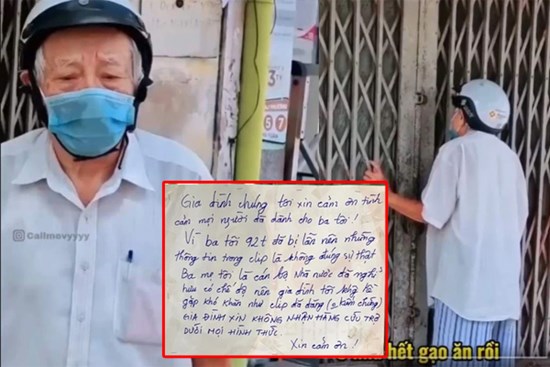 Callmevyyyy
3
7
Gia đình chúng tôi xin cảm ơn tình
cảm mọi người đã dành cho ba tôi!
Vì ba tôi 92t đã bị lẫn nên những
thông tin trong clip là không đúng sự thật
Ba mẹ tôi là cán bộ Nhà nước đã nghỉ
hưu có chế độ nên gia đình tôi không hề
gặp khó khăn như clip đã đăng (ko kiểm chứng)
GIA ĐÌNH XIN KHÔNG NHẬN HÀNG CỨU TRỢ
DƯỚI MỌI HÌNH THỨC.
Xin cảm ơn!
hết gạo ăn rồi